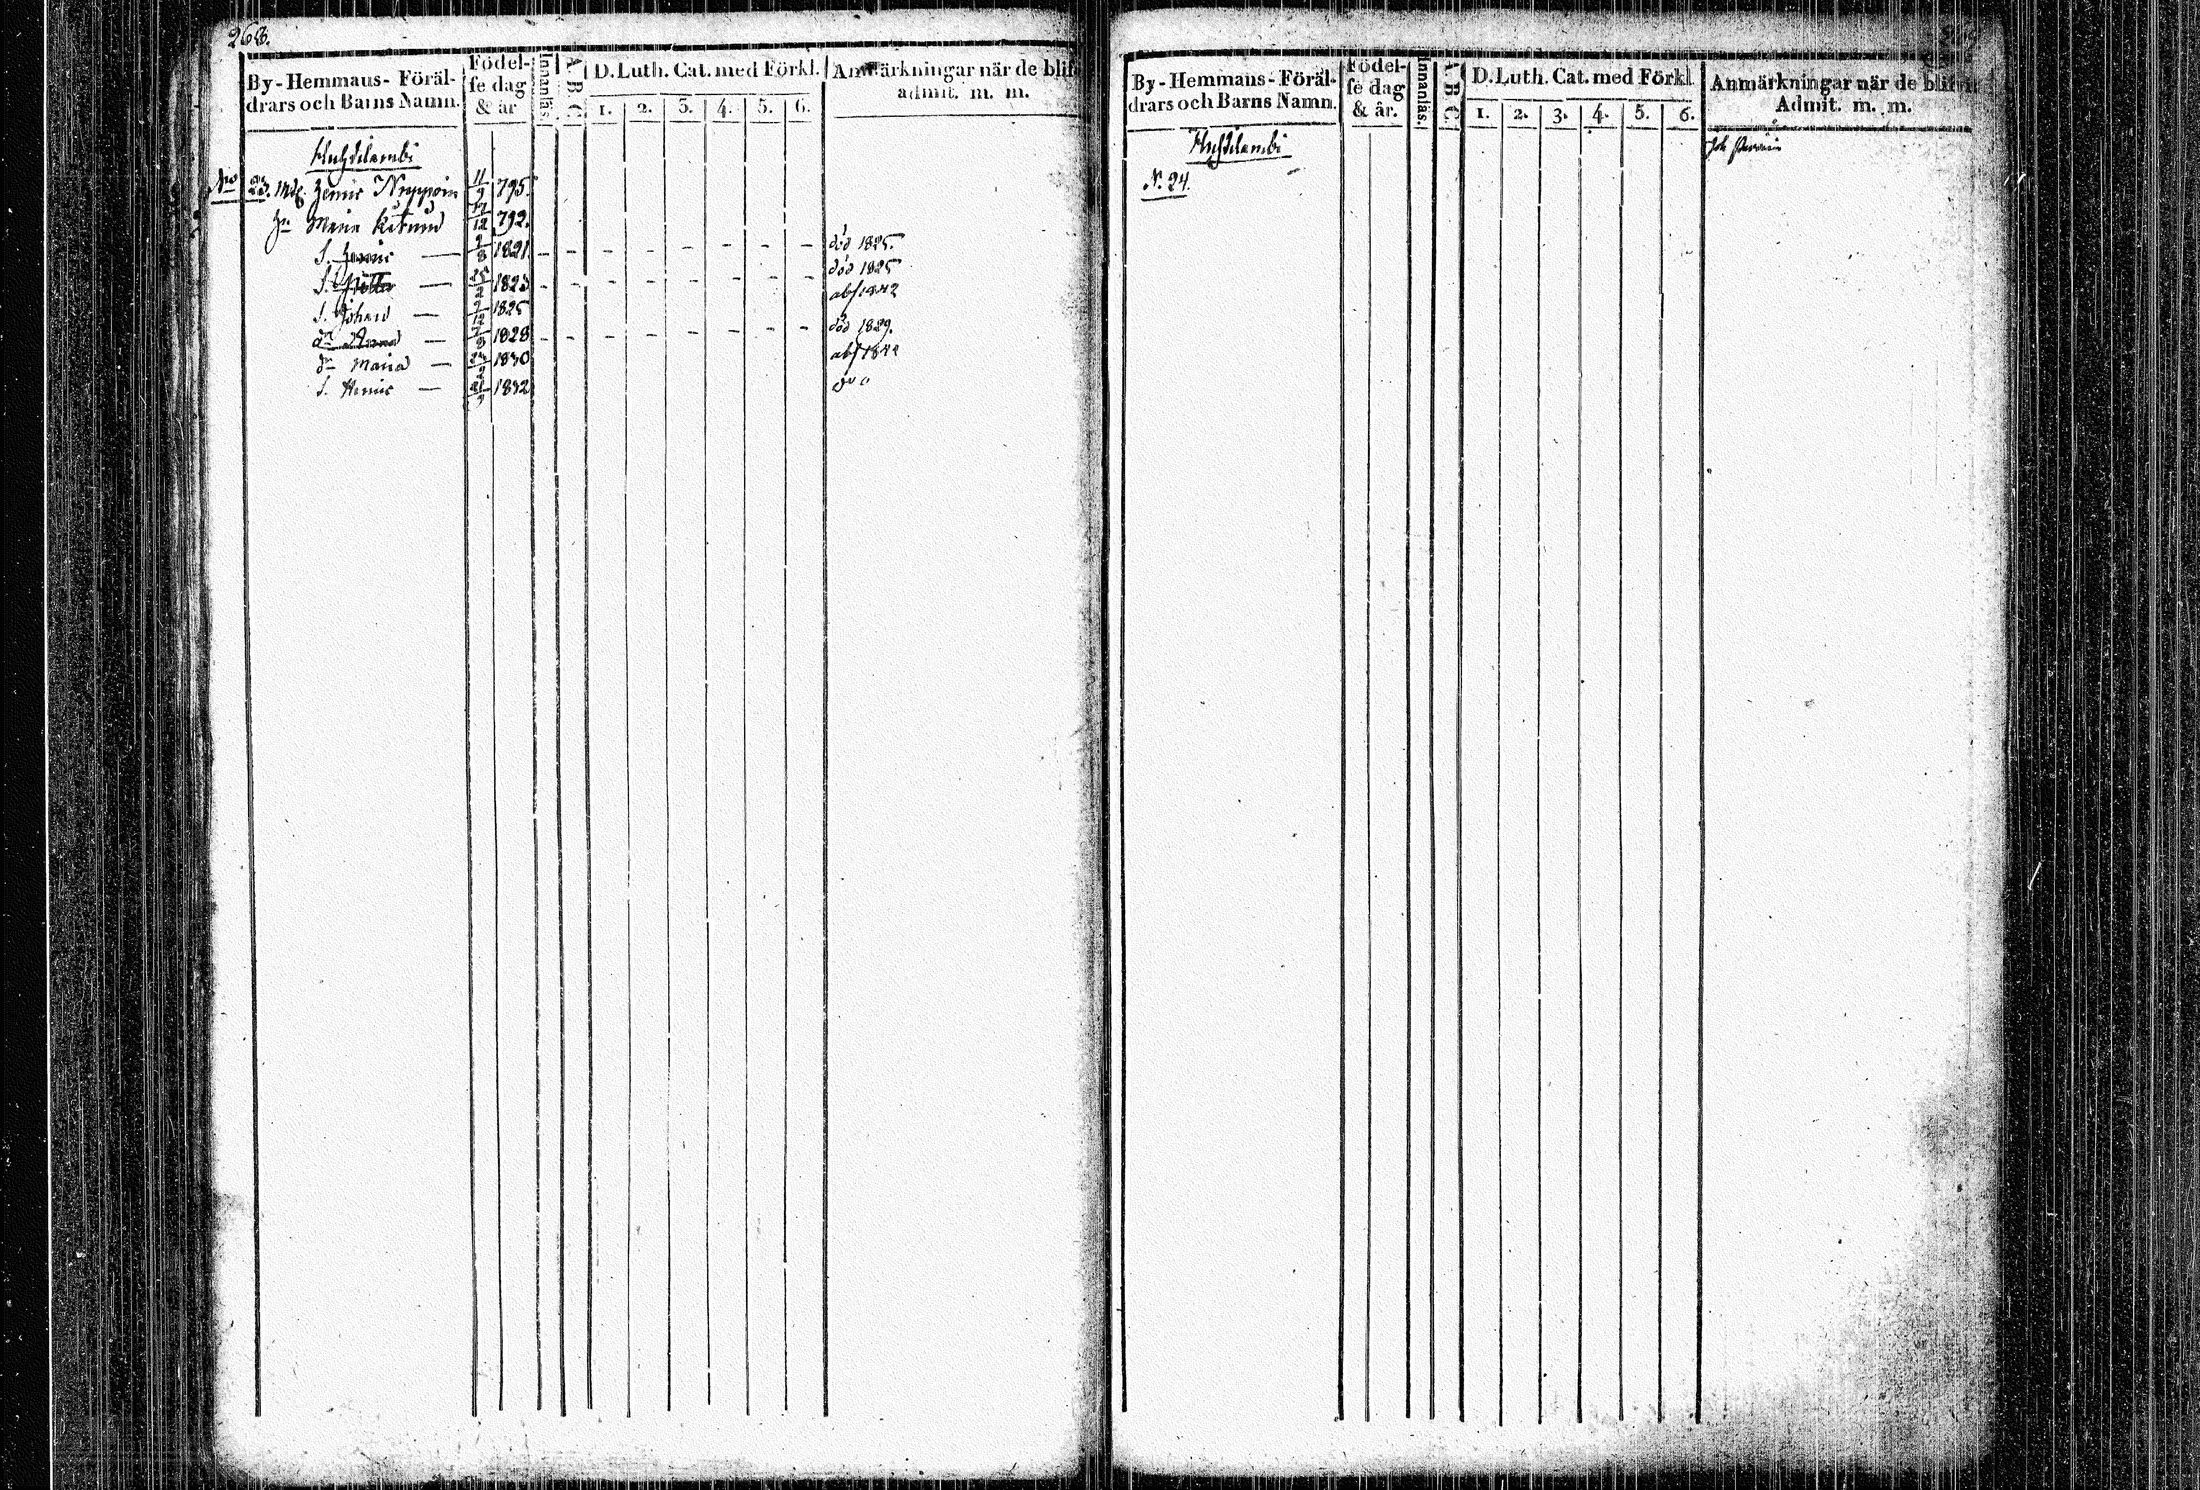 268.
By-Hemmans-Föräl-
drars och Barns Namn.
Födel-
se dag
& år
Innanläs.
A B C
D. Luth. Cat. med Förkl.
1. 2. 3. 4. 5. 6.
Anmärkningar när de blif
admit. m. m.
No 23. Henric Nuppoin 11/9 795.
Maria 12 792.
S. Henric — 8 1821. – – – – – – – – död 1825.
S. — 25/2 1823 – – – – – – – – död 1825
S. Johan — 12 1825 abs 1842
dr Anna — 8 1828 – – – – – – – – död 1829.
dr Maria — 1830 abs 1842
S. Henric — 21/9 1832 do
By-Hemmans-Föräl-
drars och Barns Namn.
Födel-
se dag
& år.
Innanläs.
A B C
D. Luth. Cat. med Förkl.
1. 2. 3. 4. 5. 6.
Anmärkningar när de blifvit
Admit. m. m.
N. 24.
Joh